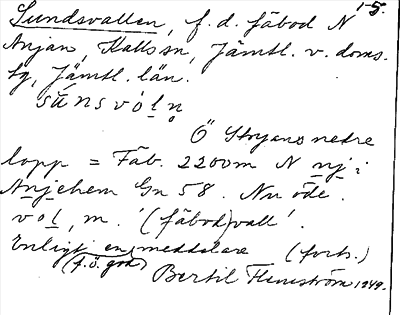 1-5.
Lundsvallen, f. d. fäbod N
Anjan, Kalls sn, Jämtl. v. doms.
tg, Jämtl. län.
súnsvòln̥
Ö Storåns nedre
lopp = Fäb. 2200m N nj i
Anjehem Gn 58. Nu öde.
vol, m. '(fäbod)vall'.
Enligt en meddelare (forts.)
(f.ö. god)
Bertil Flemström 1949.